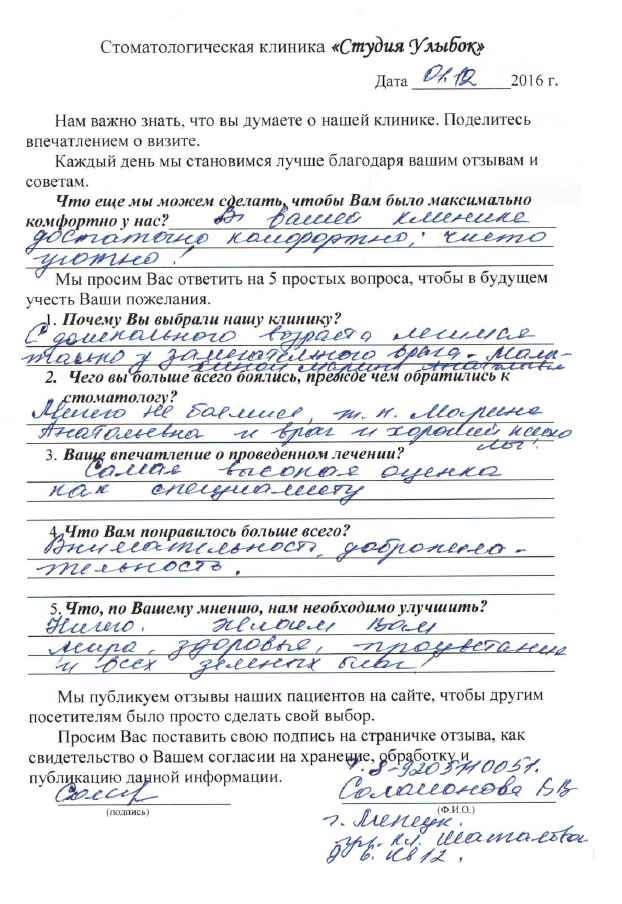 Стоматологическая клиника «Студия Улыбок»
Дата 01.12 2016 г.
Нам важно знать, что вы думаете о нашей клинике. Поделитесь
впечатлением о визите.
Каждый день мы становимся лучше благодаря вашим отзывам и
советам.
Что еще мы можем сделать, чтобы Вам было максимально
комфортно у нас? В вашей клинике
достаточно комфортно, чисто
уютно!
Мы просим Вас ответить на 5 простых вопроса, чтобы в будущем
учесть Ваши пожелания.
1. Почему Вы выбрали нашу клинику?
С дошкольного возраста лечимся
только у замечательного врача - Мала-
хиной Марины Анатольевны
2. Чего вы больше всего боялись, прежде чем обратились к
стоматологу?
Ничего не боялись, т.к. Марина
Анатольевна и врач и хороший психо
лог!
3. Ваше впечатление о проведенном лечении?
Самая высокая оценка
как специалисту
4. Что Вам понравилось больше всего?
Внимательность, доброжела-
тельность.
5. Что, по Вашему мнению, нам необходимо улучшить?
Ничего. Желаем Вам
мира, здоровья, процветания
и всех земных благ!
Мы публикуем отзывы наших пациентов на сайте, чтобы другим
посетителям было просто сделать свой выбор.
Просим Вас поставить свою подпись на страничке отзыва, как
свидетельство о Вашем согласии на хранение, обработку и
публикацию данной информации.
т. 8-9205710051.
Соломонова ВВ
(подпись) (Ф.И.О.)
г. Липецк.
ул. Шаталова
д 6. кв 12.